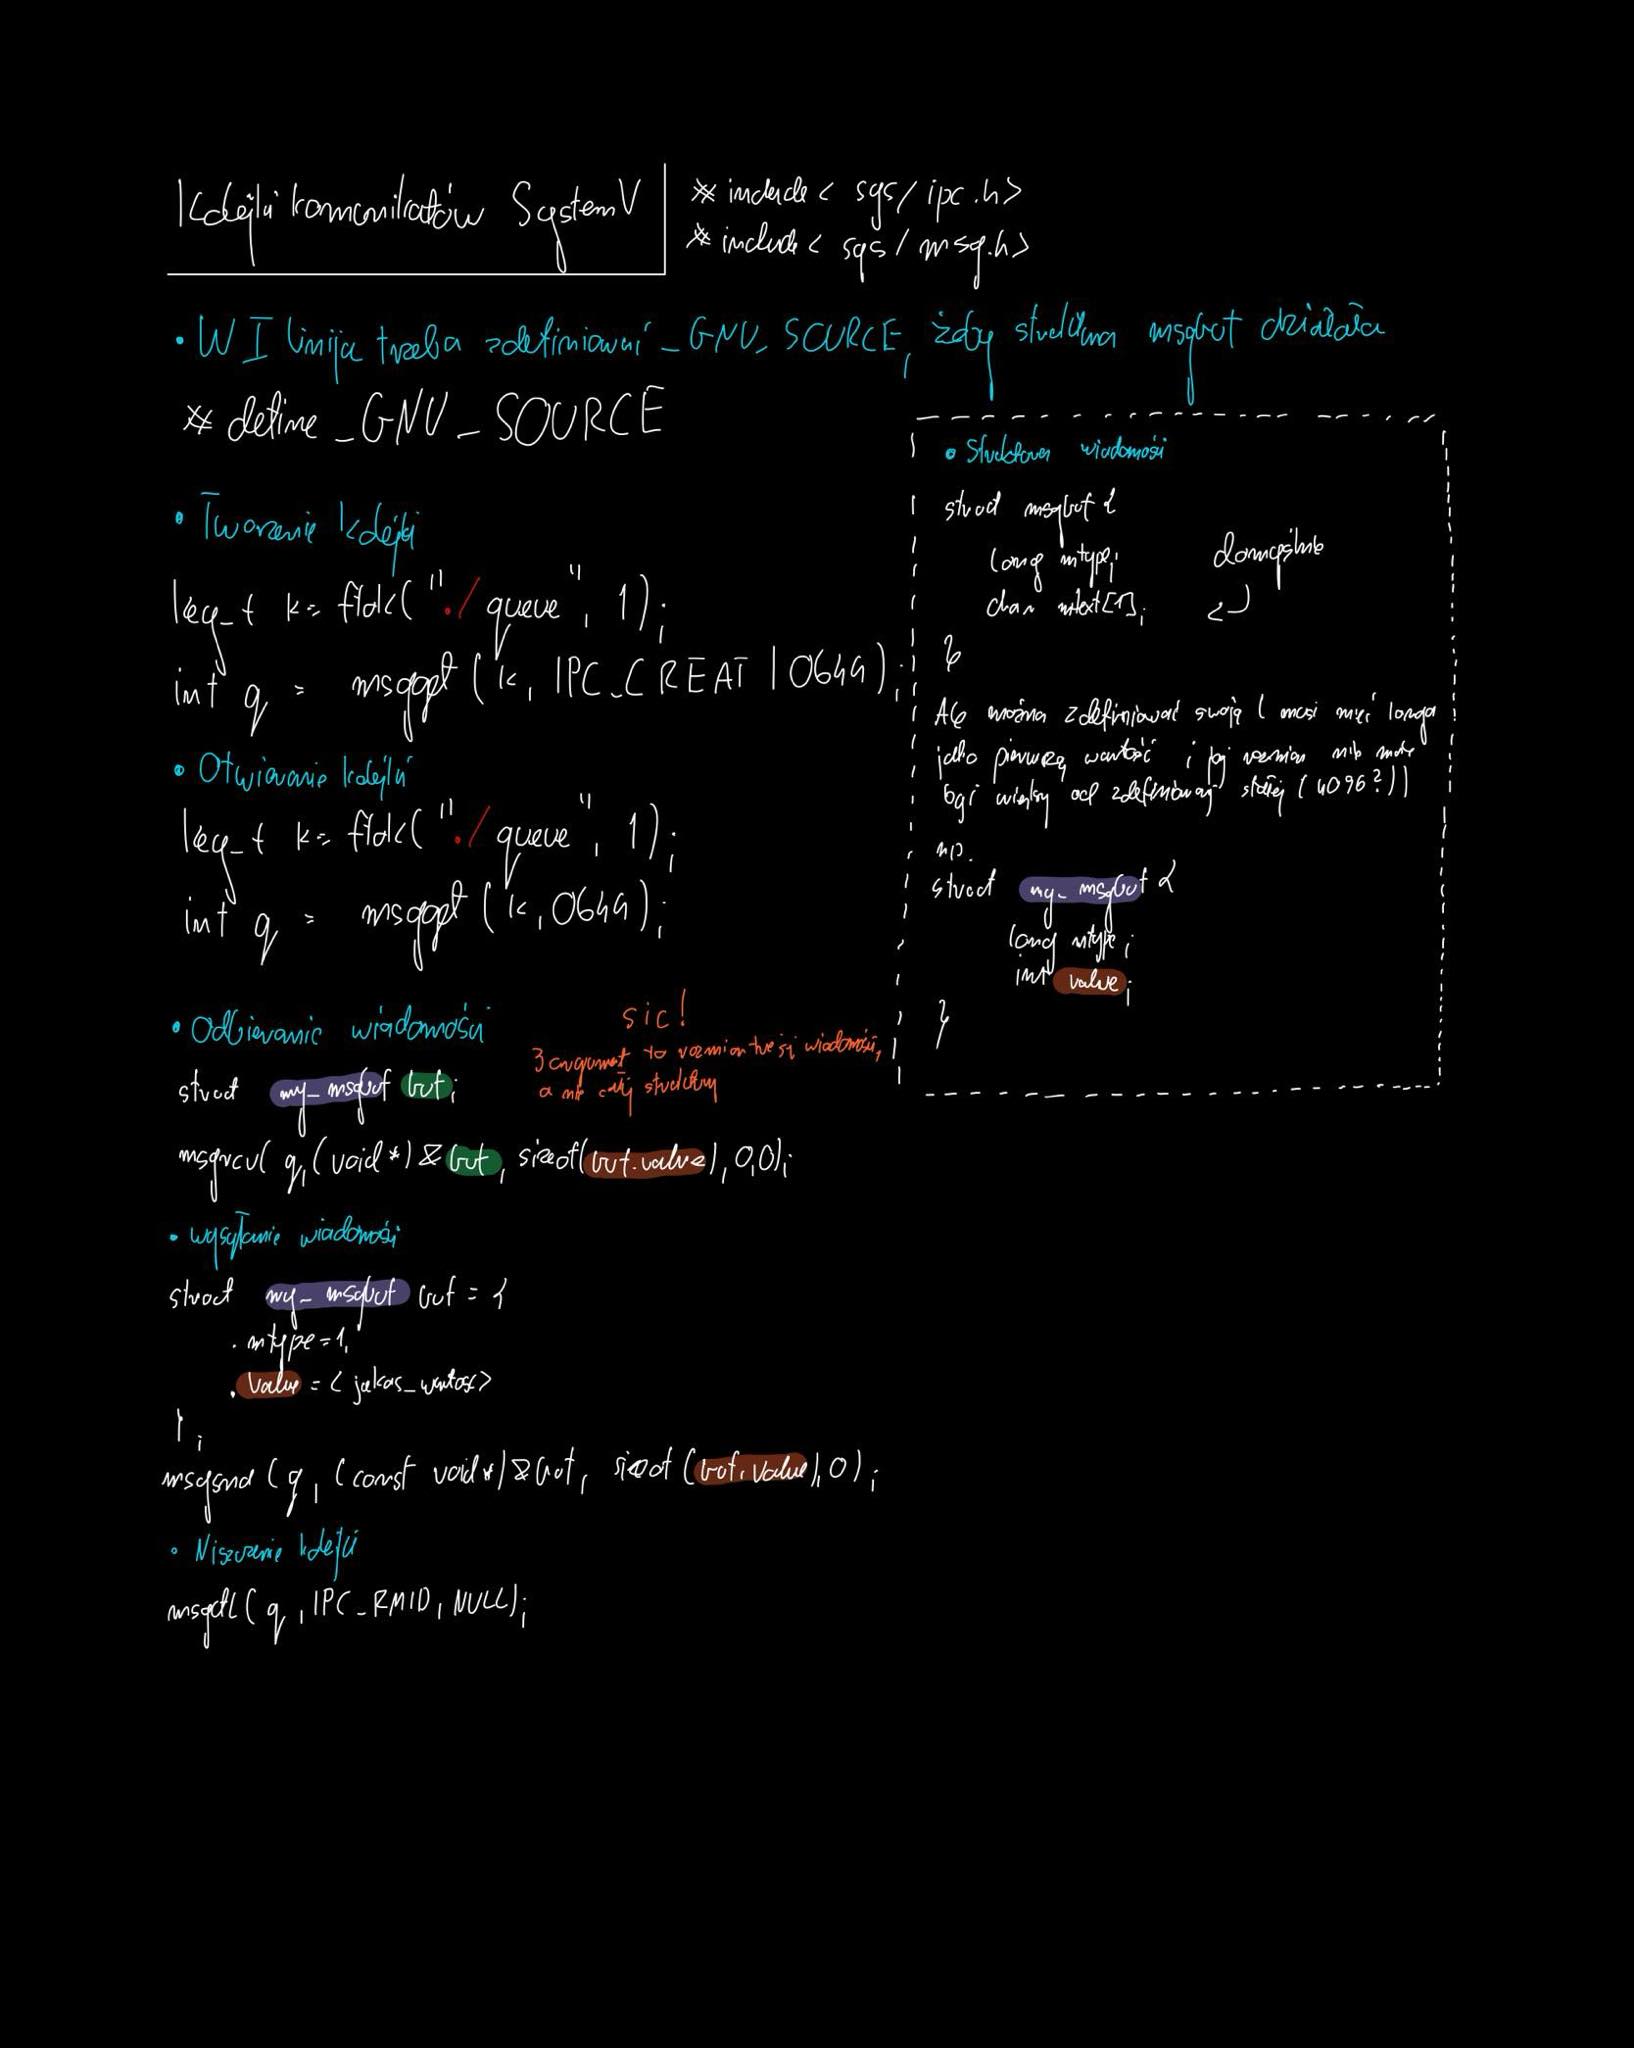 Kolejki komunikatów System V
#include < sys/ipc.h>
#include < sys/msg.h>
• W I linijce trzeba zdefiniować _GNU_SOURCE, żeby struktura msgbuf działała
# define _GNU_SOURCE
• Tworzenie kolejki
key_t k = ftok("./queue", 1);
int q = msgget(k, IPC_CREAT | 0644);
• Otwieranie kolejki
key_t k = ftok("./queue", 1);
int q = msgget(k, 0644);
• Odbieranie wiadomości
sic!
3 argument to rozmiar treści wiadomości,
a nie całej struktury
struct my_msgbuf buf;
msgrcv( q, (void *) &buf, sizeof(buf.value), 0,0);
• wysyłanie wiadomości
struct my_msgbuf buf = {
.mtype=1,
.value = < jakas_wartosc>
};
msgsnd (q, (const void*) &buf, sizeof (buf.value), 0);
• Niszczenie kolejki
msgctl( q, IPC_RMID, NULL);
• Struktura wiadomości
struct msgbuf {
long mtype;
char mtext[1];
domyślnie
}
Ale można zdefiniować swoją ( musi mieć longa
jako pierwszą wartość i jej rozmiar nie może
być większy od zdefiniowanej stałej (4096?))
np.
struct my_msgbuf {
long mtype;
int value;
}